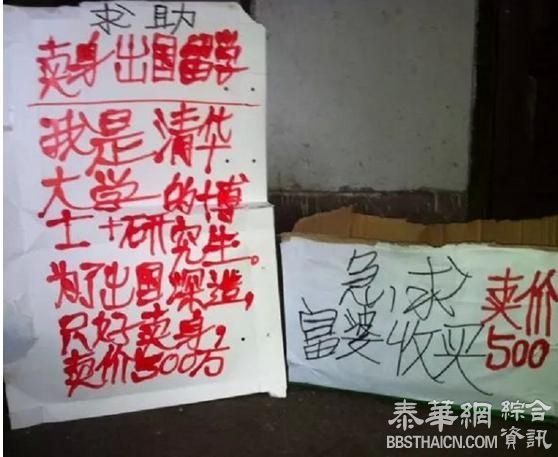 求助
卖身出国留学
我是清华
大学的博
士+研究生。
为了出国深造,
只好卖身,
卖价500万
急求
富婆收买
卖价
500
泰華網 綜合資訊
BBSTHAICN.COM